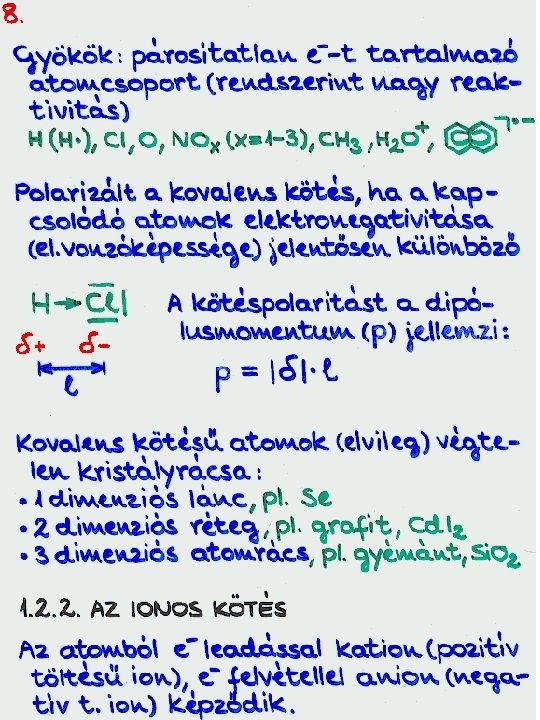 8.
Gyökök: párosítatlan e⁻-t tartalmazó
atomcsoport (rendszerint nagy reak-
tivitás)
H (H•), Cl, O, NOₓ (x=1-3), CH₃, H₂O⁺, ⌝•−
Polarizált a kovalens kötés, ha a kap-
csolódó atomok elektronegativitása
(el.vonzóképessége) jelentősen különböző
H→Cl
δ+ δ-
l
A kötéspolaritást a dipó-
lusmomentum (p) jellemzi:
p = |δ|·l
Kovalens kötésű atomok (elvileg) végte-
len kristályrácsa:
• 1 dimenziós lánc, pl. Se
• 2 dimenziós réteg, pl. grafit, CdI₂
• 3 dimenziós atomrács, pl. gyémánt, SiO₂
1.2.2. AZ IONOS KÖTÉS
Az atomból e⁻ leadással kation (pozitív
töltésű ion), e⁻ felvétellel anion (nega-
tív t. ion) képződik.